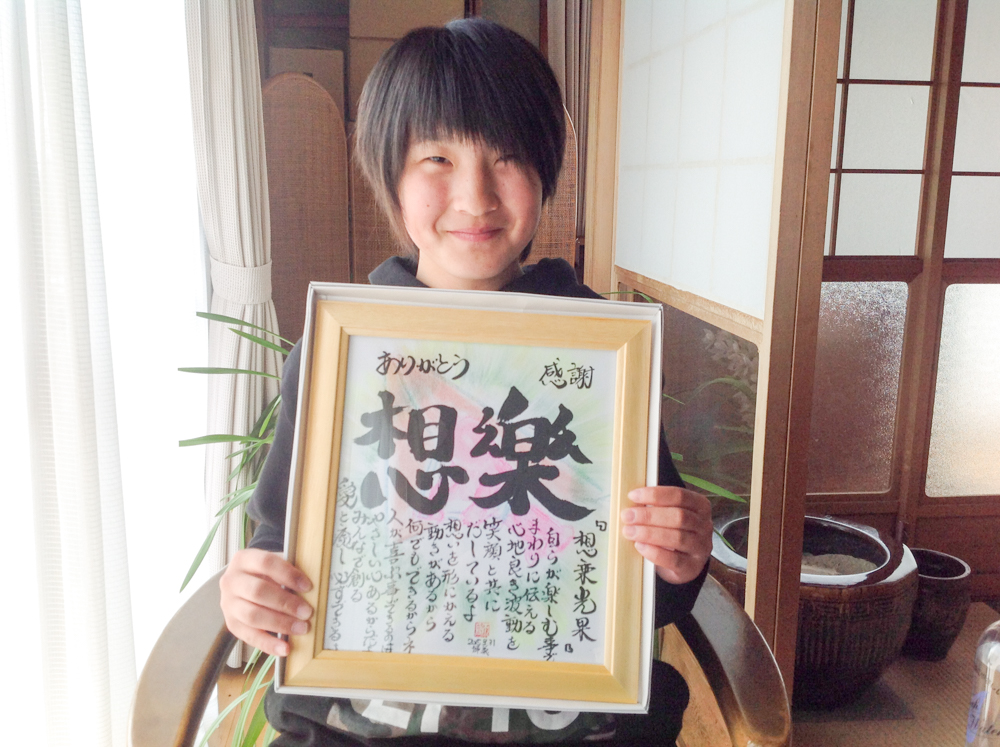 ありがとう
感謝
想樂
『想楽光果』
自らが楽しむ事が
まわりに伝える
心地良き波動を
笑顔と共に
だしているよ
想いを形にかえる
動きがあるから
何でもできるからネ
人が喜ぶ事ができるのは
やさしい心があるからだよ
みんなで創る